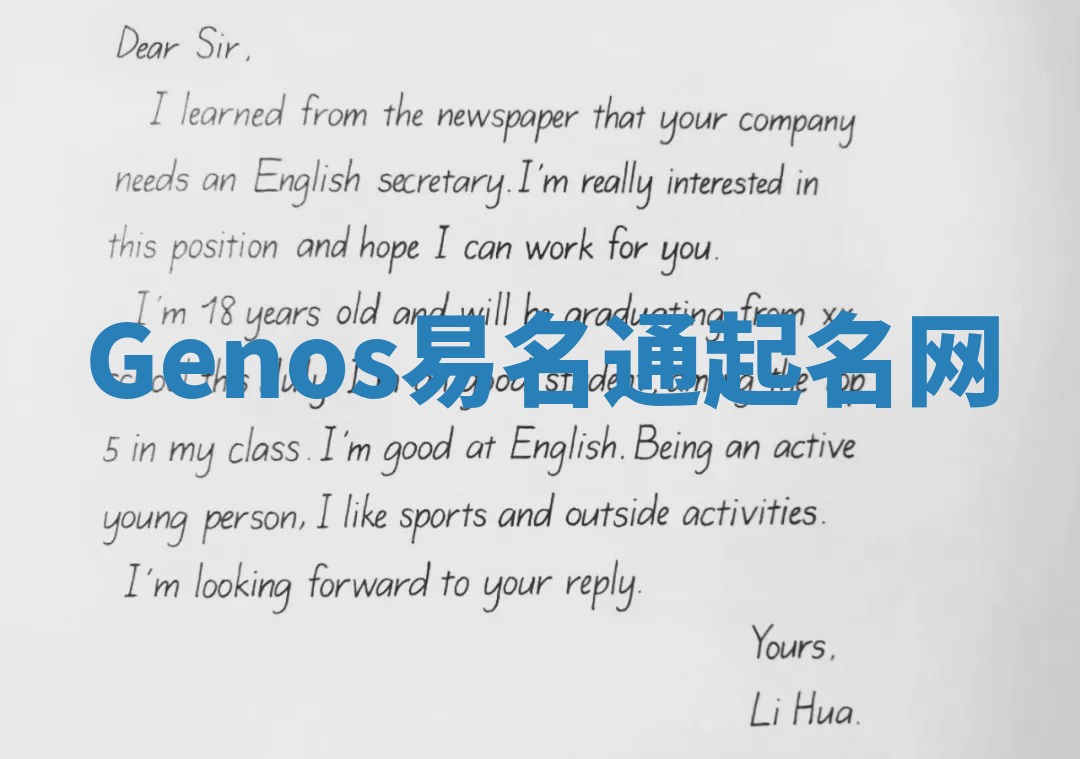 Dear Sir,
I learned from the newspaper that your company
needs an English secretary. I'm really interested in
this position and hope I can work for you.
I'm 18 years old and will be graduating from xx
school this July. I'm a good student, among the top
Genos易名通起名网
5 in my class. I'm good at English. Being an active
young person, I like sports and outside activities.
I'm looking forward to your reply.
Yours,
Li Hua.